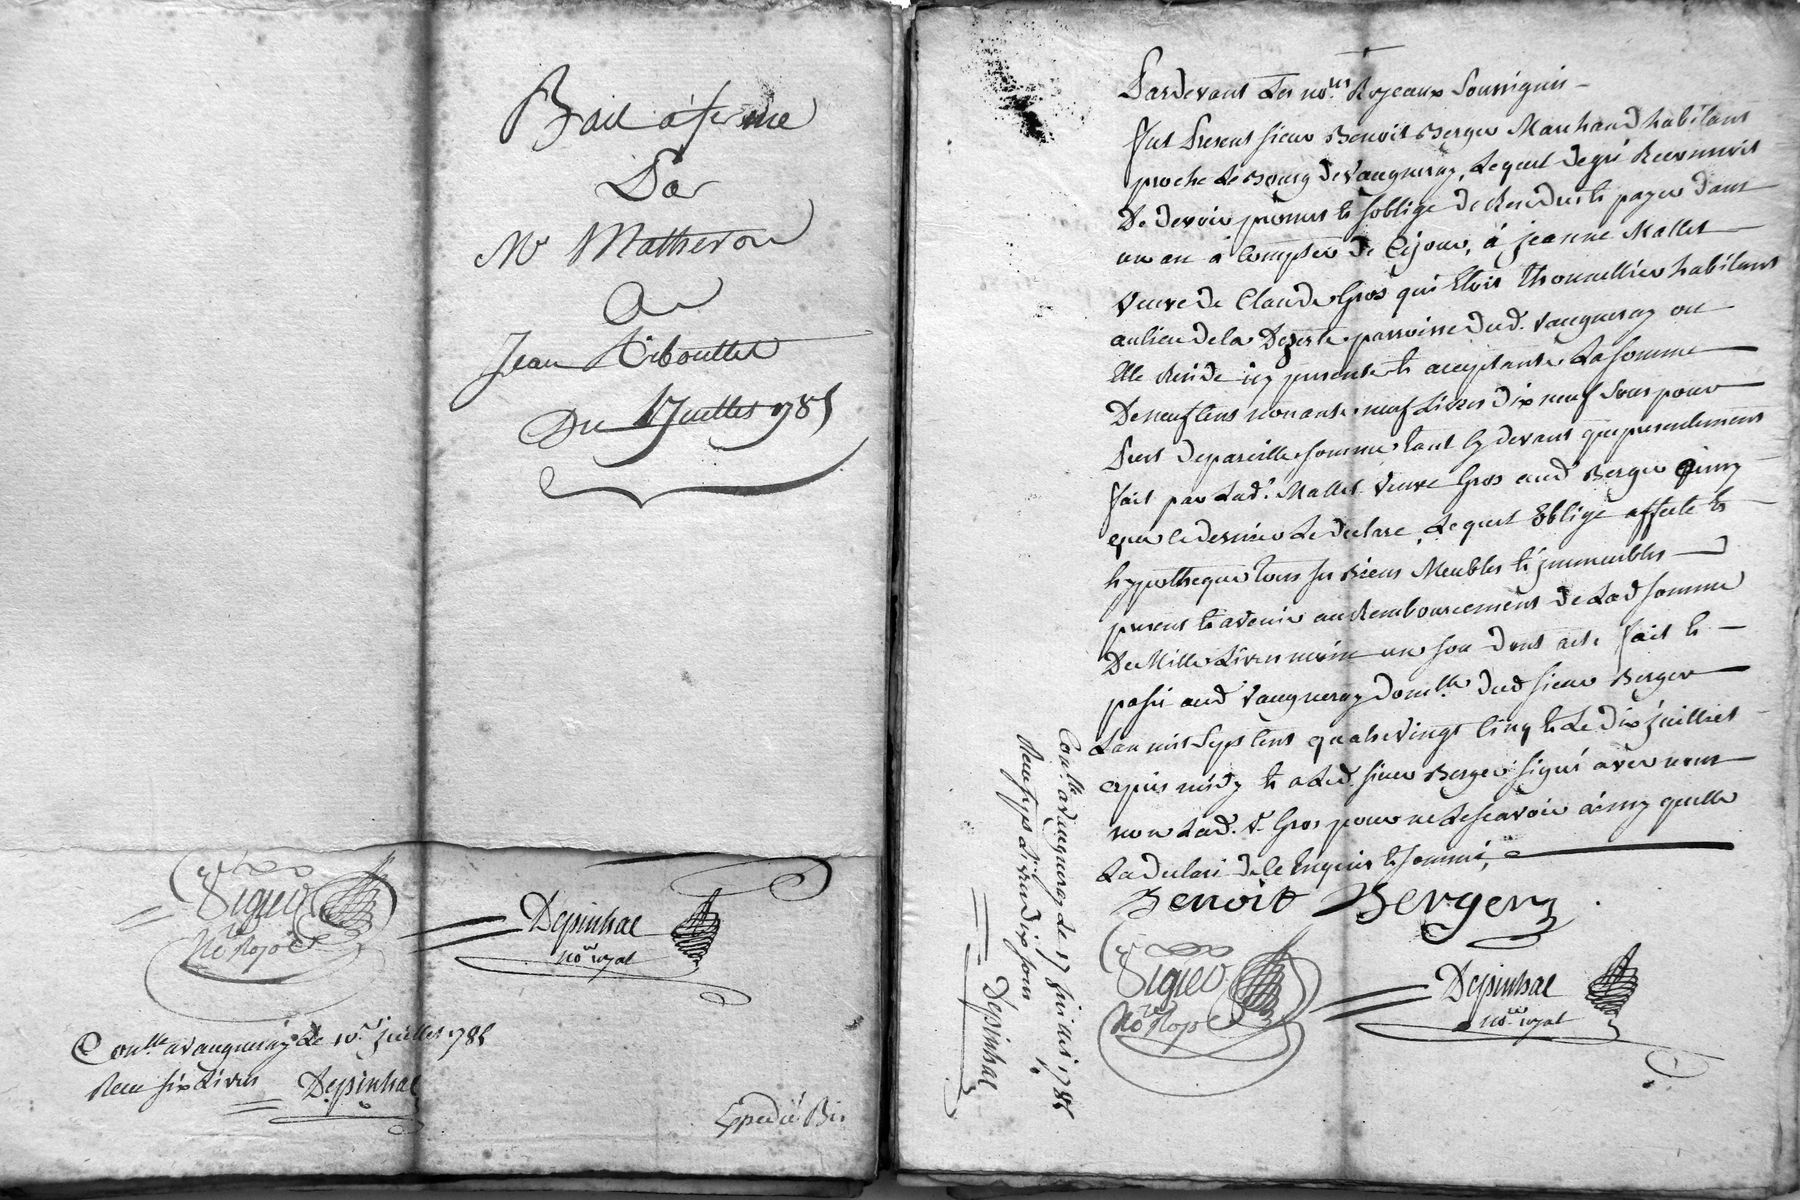 Bail a ferme
Par
Mr Matheron
A
Jean Riboullet
Du 1 Juillet 1785
Vigier
No.re Royal
Depinhac
no.re royal
Con.lle a Vaugneray le 10.e juillet 1785
Reçu six Livres Depinhac
Expedié Bis.
Pardevant Les no.res Royeaux Soussignés
fut Present sieur Benoit Berger Marchand habitant
proche Le Bourg de Vaugneray, Lequel de gré Reconnoit
De devoir promet et soblige de Rendre et payer dans
un an a Compter de Cejour, á jeanne Mallet
Veuve de Claude Gros qui Etoit Thonnellier habitant
au lieu de la Dezerte parroisse dud. Vaugneray ou
Elle Reside icy presente et acceptante La somme
De neuf Cens nonante neuf Livres dix neuf Sous pour
Prest de pareille somme tant cy devant que presentement
fait par Lad.e Mallet Veuve Gros aud. Berger ainsy
que ce dernier Le declare, Lequel Oblige affecte et
hypotheque tous ses Biens Meubles et immeubles
present et avenir au Remboursement de Lad. somme
De Mille Livres moins un sou dont acte fait et
passé aud. Vaugneray domi.lle dud. sieur Berger
Lan mil Sept Cent quatre Vingt Cinq et Le dix juilliet
apres midy et a Led. sieur Berger signé avec nous
non Lad. V.e Gros pour ne Le scavoir ainsy quelle
La declaré de ce Enquise et sommé,
Benoit Berger
Vigier
No.re Royal
Depinhac
no.re royal
Con.lle a Vaugneray Le 17 juillet 1785
Reçu sept Livres dix sous
Depinhac